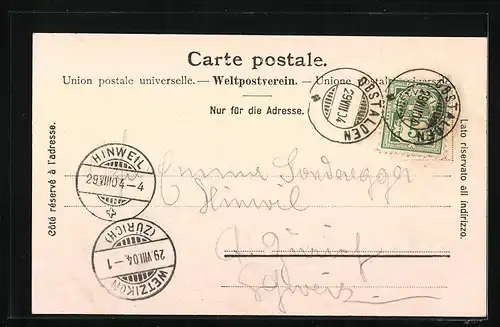 Carte postale.
Union postale universelle. — Weltpostverein. — Unione postale universale
Nur für die Adresse.
Côté réservé à l'adresse.
Lato riservato all indirizzo.
OBSTALDEN
29.VIII.04
OBSTALDEN
HINWEIL
29.VIII.04-4
WETZIKON
(ZÜRICH)
29.VIII.04.-1
Emma Sonderegger
Hinwil
Zürich
Schweiz